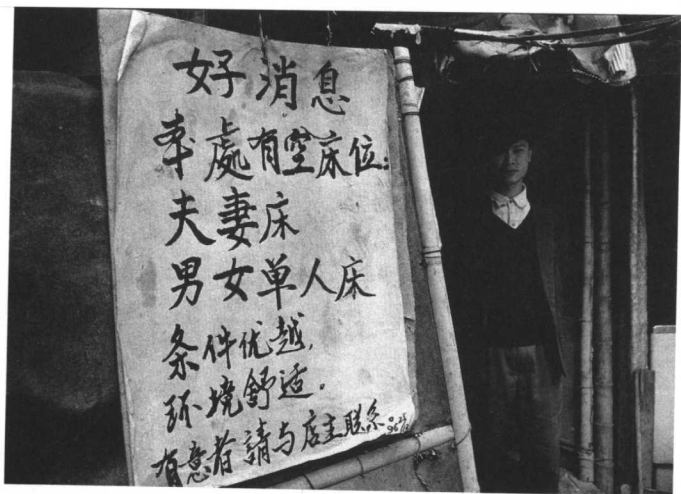 好消息
本處有空床位:
夫妻床
男女单人床
条件优越,
环境舒适。
有意者請与店主联系。